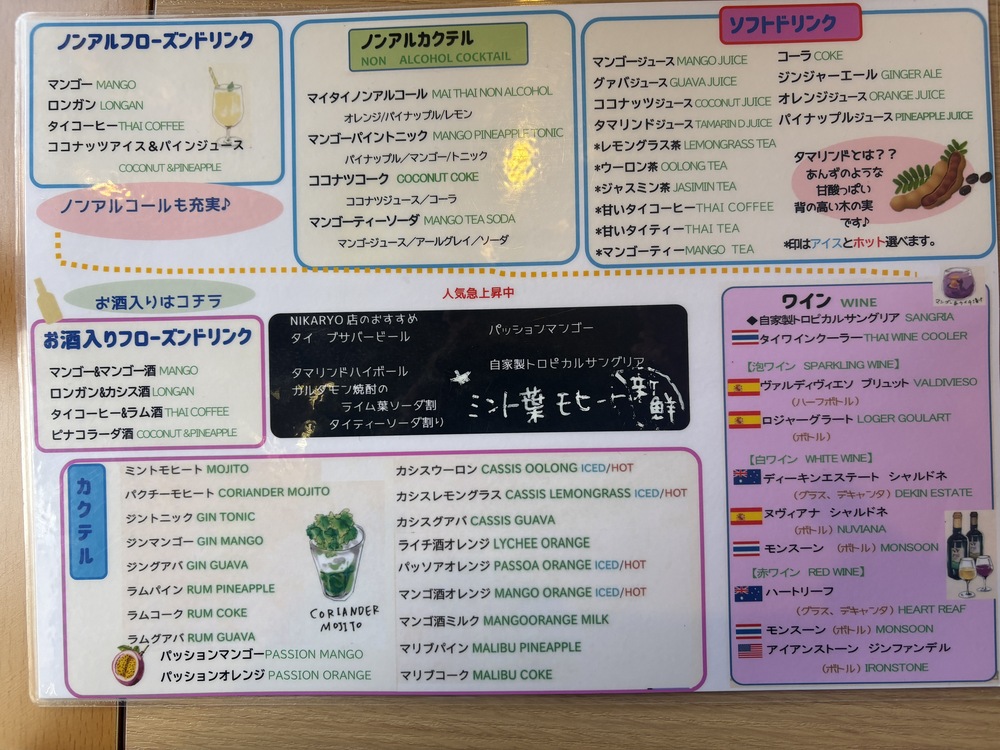 ノンアルフローズンドリンク
マンゴー MANGO
ロンガン LONGAN
タイコーヒーTHAI COFFEE
ココナッツアイス＆パインジュース
COCONUT &PINEAPPLE
ノンアルコールも充実♪
ノンアルカクテル
NON ALCOHOL COCKTAIL
マイタイノンアルコール MAI THAI NON ALCOHOL
オレンジ/パイナップル/レモン
マンゴーパイントニック MANGO PINEAPPLE TONIC
パイナップル／マンゴー/トニック
ココナツコーク COCONUT COKE
ココナッツジュース／コーラ
マンゴーティーソーダ MANGO TEA SODA
マンゴージュース／アールグレイ／ソーダ
ソフトドリンク
マンゴージュース MANGO JUICE
グァバジュース GUAVA JUICE
ココナッツジュース COCONUT JUICE
タマリンドジュース TAMARIN D JUICE
*レモングラス茶 LEMONGRASS TEA
*ウーロン茶 OOLONG TEA
*ジャスミン茶 JASIMIN TEA
*甘いタイコーヒー THAI COFFEE
*甘いタイティー THAI TEA
*マンゴーティー MANGO TEA
コーラ COKE
ジンジャーエール GINGER ALE
オレンジジュース ORANGE JUICE
パイナップルジュース PINEAPPLE JUICE
タマリンドとは？？
あんずのような
甘酸っぱい
背の高い木の実
です♪
*印はアイスとホット選べます。
お酒入りはコチラ
お酒入りフローズンドリンク
マンゴー&マンゴー酒 MANGO
ロンガン&カシス酒 LONGAN
タイコーヒー&ラム酒 THAI COFFEE
ピナコラーダ酒 COCONUT &PINEAPPLE
人気急上昇中
NIKARYO 店のおすすめ
タイ プサバービール
タマリンドハイボール
ガルダモン焼酎の
ライム葉ソーダ割
タイティーソーダ割り
パッションマンゴー
自家製トロピカルサングリア
ミント葉モヒート 新鮮
ワイン WINE
◆自家製トロピカルサングリア SANGRIA
タイワインクーラー THAI WINE COOLER
【泡ワイン SPARKLING WINE】
ヴァルディヴィエソ ブリュット VALDIVIESO
(ハーフボトル)
ロジャーグラート LOGER GOULART
(ボトル)
【白ワイン WHITE WINE】
ディーキンエステート シャルドネ
(グラス、デキャンタ) DEKIN ESTATE
ヌヴィアナ シャルドネ
(ボトル) NUVIANA
モンスーン (ボトル) MONSOON
【赤ワイン RED WINE】
ハートリーフ
(グラス、デキャンタ) HEART REAF
モンスーン (ボトル) MONSOON
アイアンストーン ジンファンデル
(ボトル) IRONSTONE
カクテル
ミントモヒート MOJITO
パクチーモヒート CORIANDER MOJITO
ジントニック GIN TONIC
ジンマンゴー GIN MANGO
ジングアバ GIN GUAVA
ラムパイン RUM PINEAPPLE
ラムコーク RUM COKE
ラムグアバ RUM GUAVA
パッションマンゴーPASSION MANGO
パッションオレンジ PASSION ORANGE
CORIANDER
MOJITO
カシスウーロン CASSIS OOLONG ICED/HOT
カシスレモングラス CASSIS LEMONGRASS ICED/HOT
カシスグアバ CASSIS GUAVA
ライチ酒オレンジ LYCHEE ORANGE
パッソアオレンジ PASSOA ORANGE ICED/HOT
マンゴ酒オレンジ MANGO ORANGE ICED/HOT
マンゴ酒ミルク MANGOORANGE MILK
マリブパイン MALIBU PINEAPPLE
マリブコーク MALIBU COKE